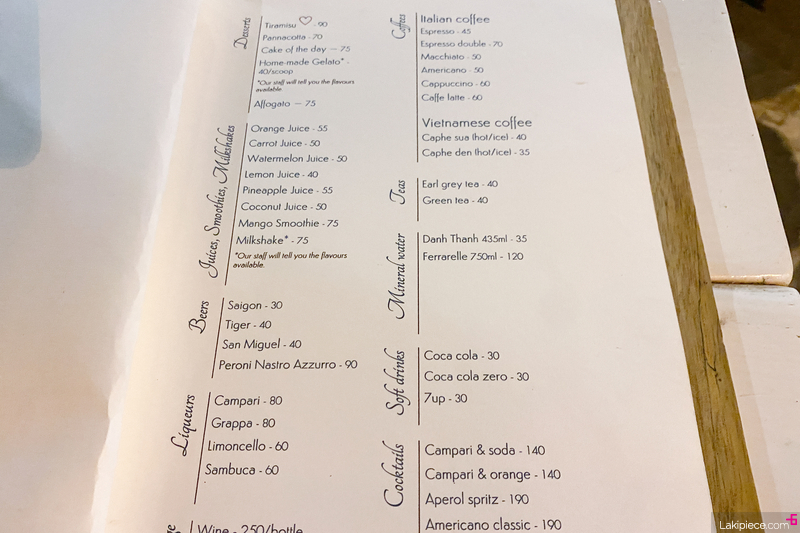 Desserts
Tiramisu ♡ - 90
Pannacotta - 70
Cake of the day — 75
Home-made Gelato* -
40/scoop
*Our staff will tell you the flavours
available.
Affogato — 75
Juices, Smoothies, Milkshakes
Orange Juice - 55
Carrot Juice - 50
Watermelon Juice - 50
Lemon Juice - 40
Pineapple Juice - 55
Coconut Juice - 50
Mango Smoothie - 75
Milkshake* - 75
*Our staff will tell you the flavours
available.
Beers
Saigon - 30
Tiger - 40
San Miguel - 40
Peroni Nastro Azzurro - 90
Liqueurs
Campari - 80
Grappa - 80
Limoncello - 60
Sambuca - 60
Wine - 250/bottle
Coffees
Italian coffee
Espresso - 45
Espresso double - 70
Macchiato - 50
Americano - 50
Cappuccino - 60
Caffe latte - 60
Vietnamese coffee
Caphe sua (hot/ice) - 40
Caphe den (hot/ice) - 35
Teas
Earl grey tea - 40
Green tea - 40
Mineral water
Danh Thanh 435ml - 35
Ferrarelle 750ml - 120
Soft drinks
Coca cola - 30
Coca cola zero - 30
7up - 30
Cocktails
Campari & soda - 140
Campari & orange - 140
Aperol spritz - 190
Americano classic - 190
Lakipiece.com